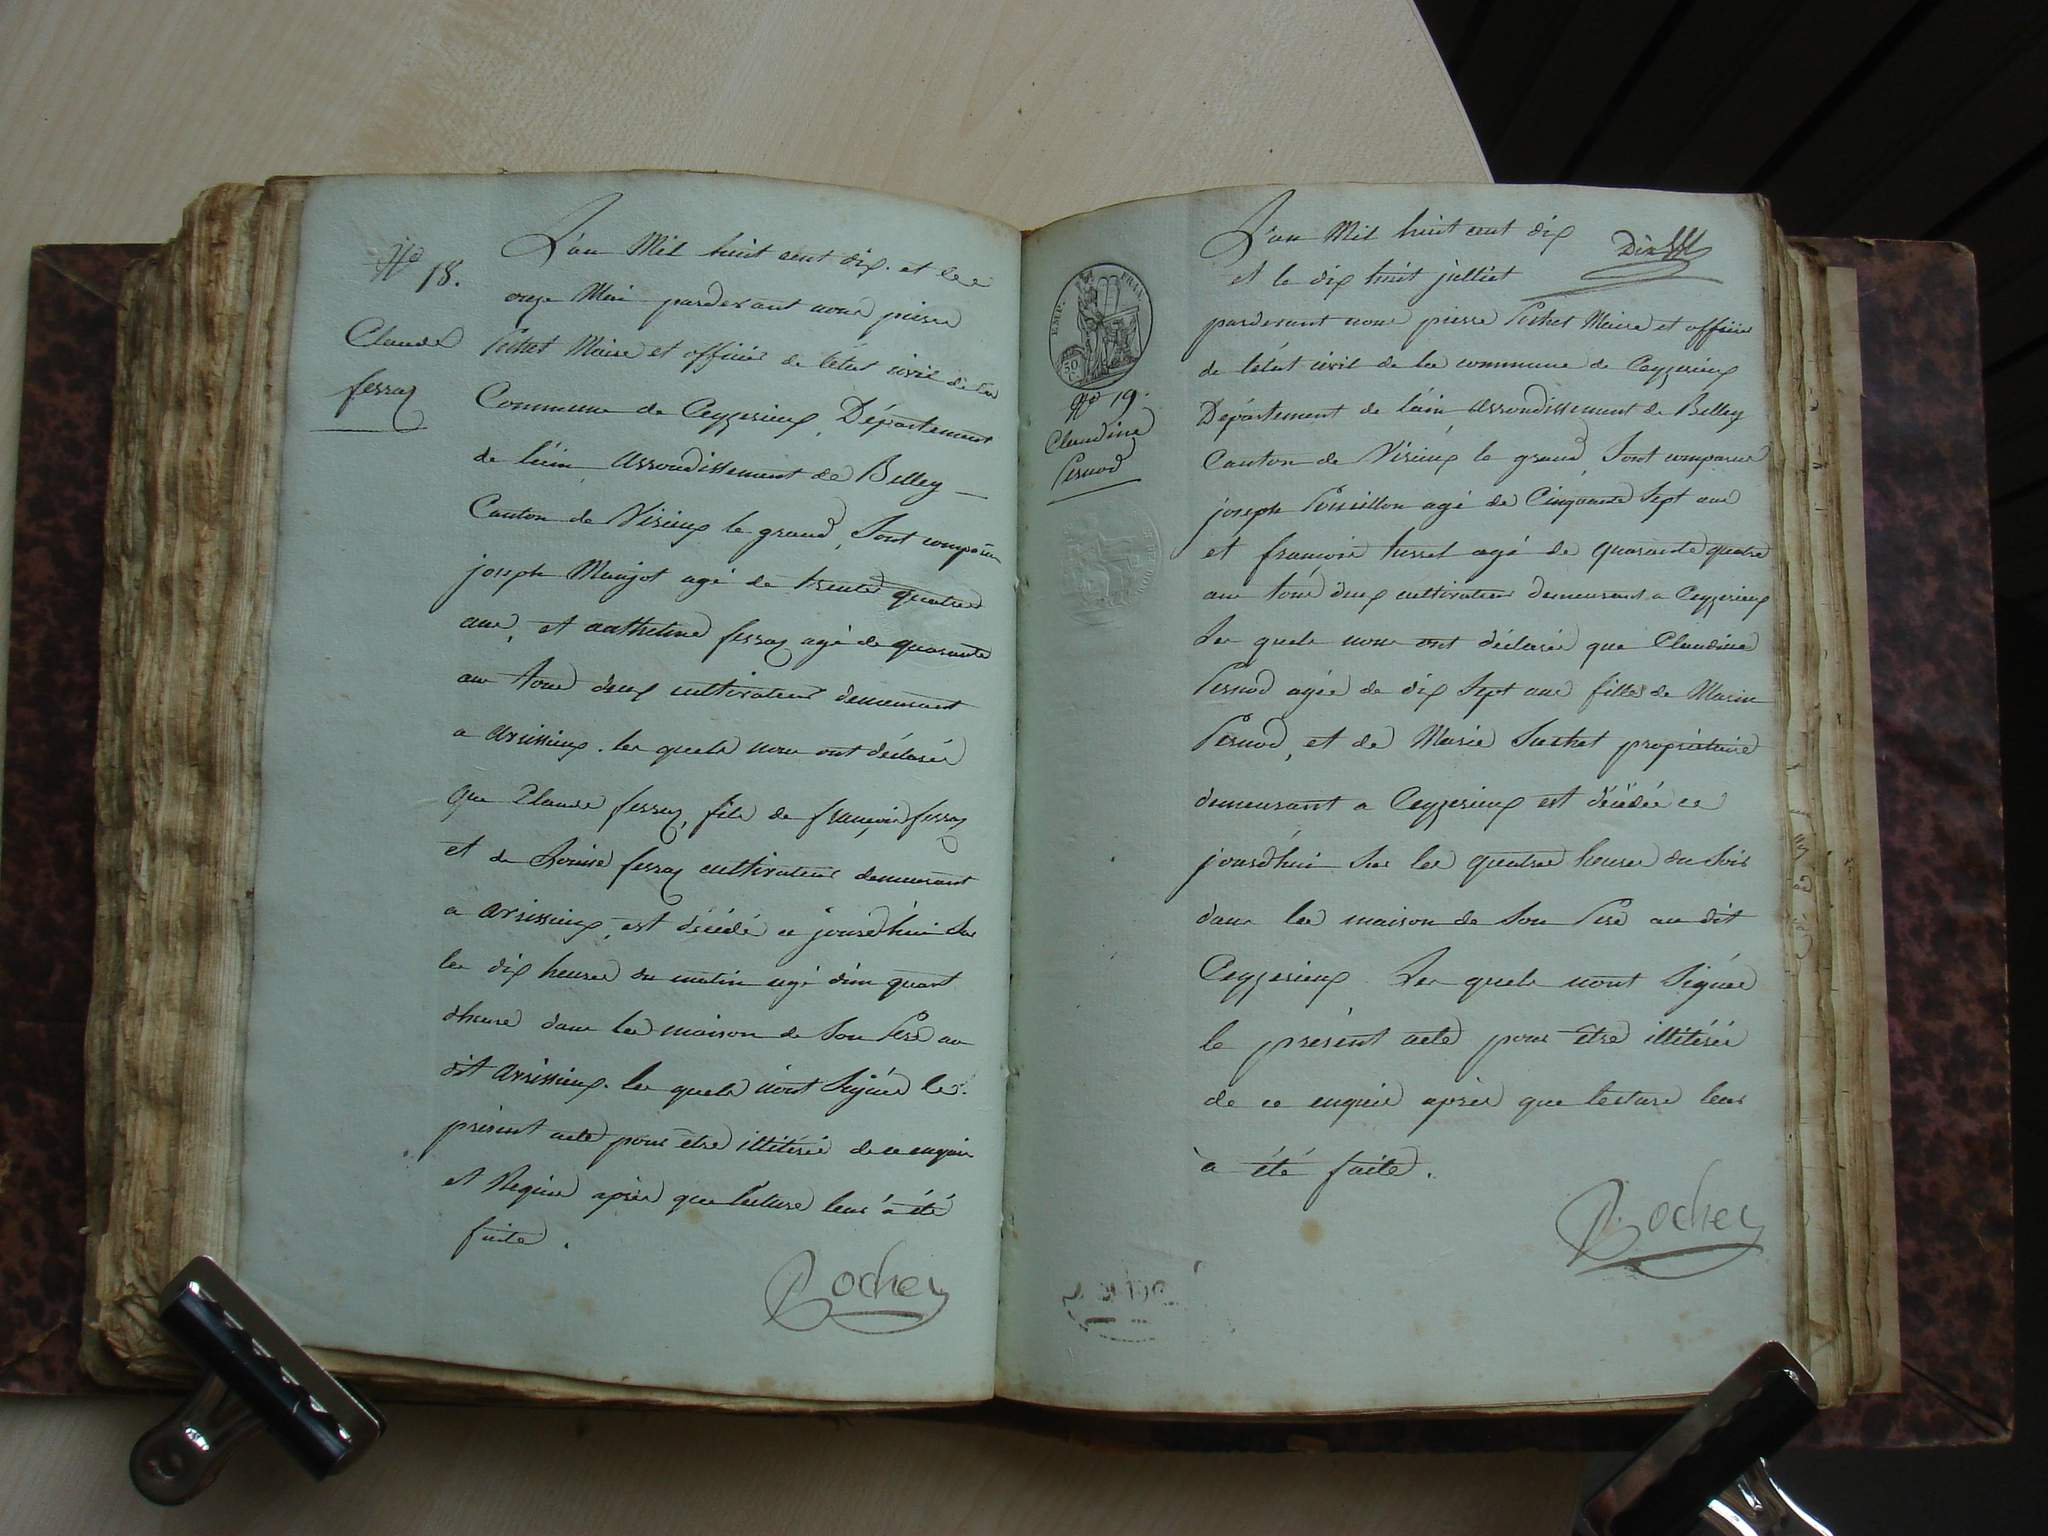 No 18.
Claude
ferraz
L'an Mil huit cent dix. et le
onze Mai pardevant nous pierre
Pochet Maire et officier de l'état civil de la
Commune de Ceyzerieux, Département
de l'ain arrondissement de Belley
Canton de Virieux le grand, Sont comparu
joseph Maujot agé de trente quatre
ans, et anthelme ferraz agé de quarante
ans tous deux cultivateurs demeurant
a avrissieux. les quels nous ont déclaré
que Claude ferraz, fils de françois ferraz
et de Louise ferraz cultivateurs demeurant
a avrissieux, est décédé ce jourdhui Sur
les dix heures du matin agé d'un quart
dheure dans la maison de Son Pere au
dit avrissieux. les quels n'ont Signés le
présent acte pour être illitérés de ce enquis
et Requis après que lecture leur à été
faite.
Rochet
EMP. FRAN.
50
No 19.
Claudine
Pernod
L'an Mil huit cent dix
Dix
et le dix huit julliet
pardevant nous pierre Pochet Maire et officier
de l'état civil de la commune de Ceyzerieux
Département de l'ain arrondissement de Belley
Canton de Virieux le grand, Sont comparus
joseph agé de Cinquante Sept ans
et françois turrel agé de quarante quatre
ans tous deux cultivateurs demeurant a Ceyzerieux
Les quels nous ont déclarés que Claudine
Pernod agée de dix Sept ans fille de Marin
Pernod, et de Marie Suchet propriétaire
demeurant a Ceyzerieux est décédée ce
jourdhui Sur les quatre heures du Soir
dans la maison de Son Pere au dit
Ceyzerieux. Les quels n'ont Signés
le présent acte pour être illitérés
de ce enquis après que lecture leur
à été faite.
Rochet